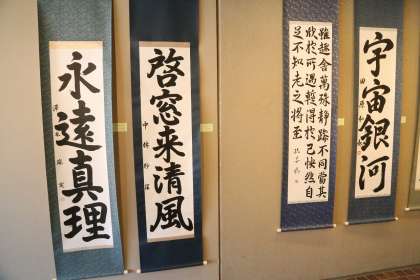 永遠真理
啓窓来清風
雖趣舎萬殊静躁不同當其
欣於所遇暫得於己快然自
足不知老之将至
宇宙銀河